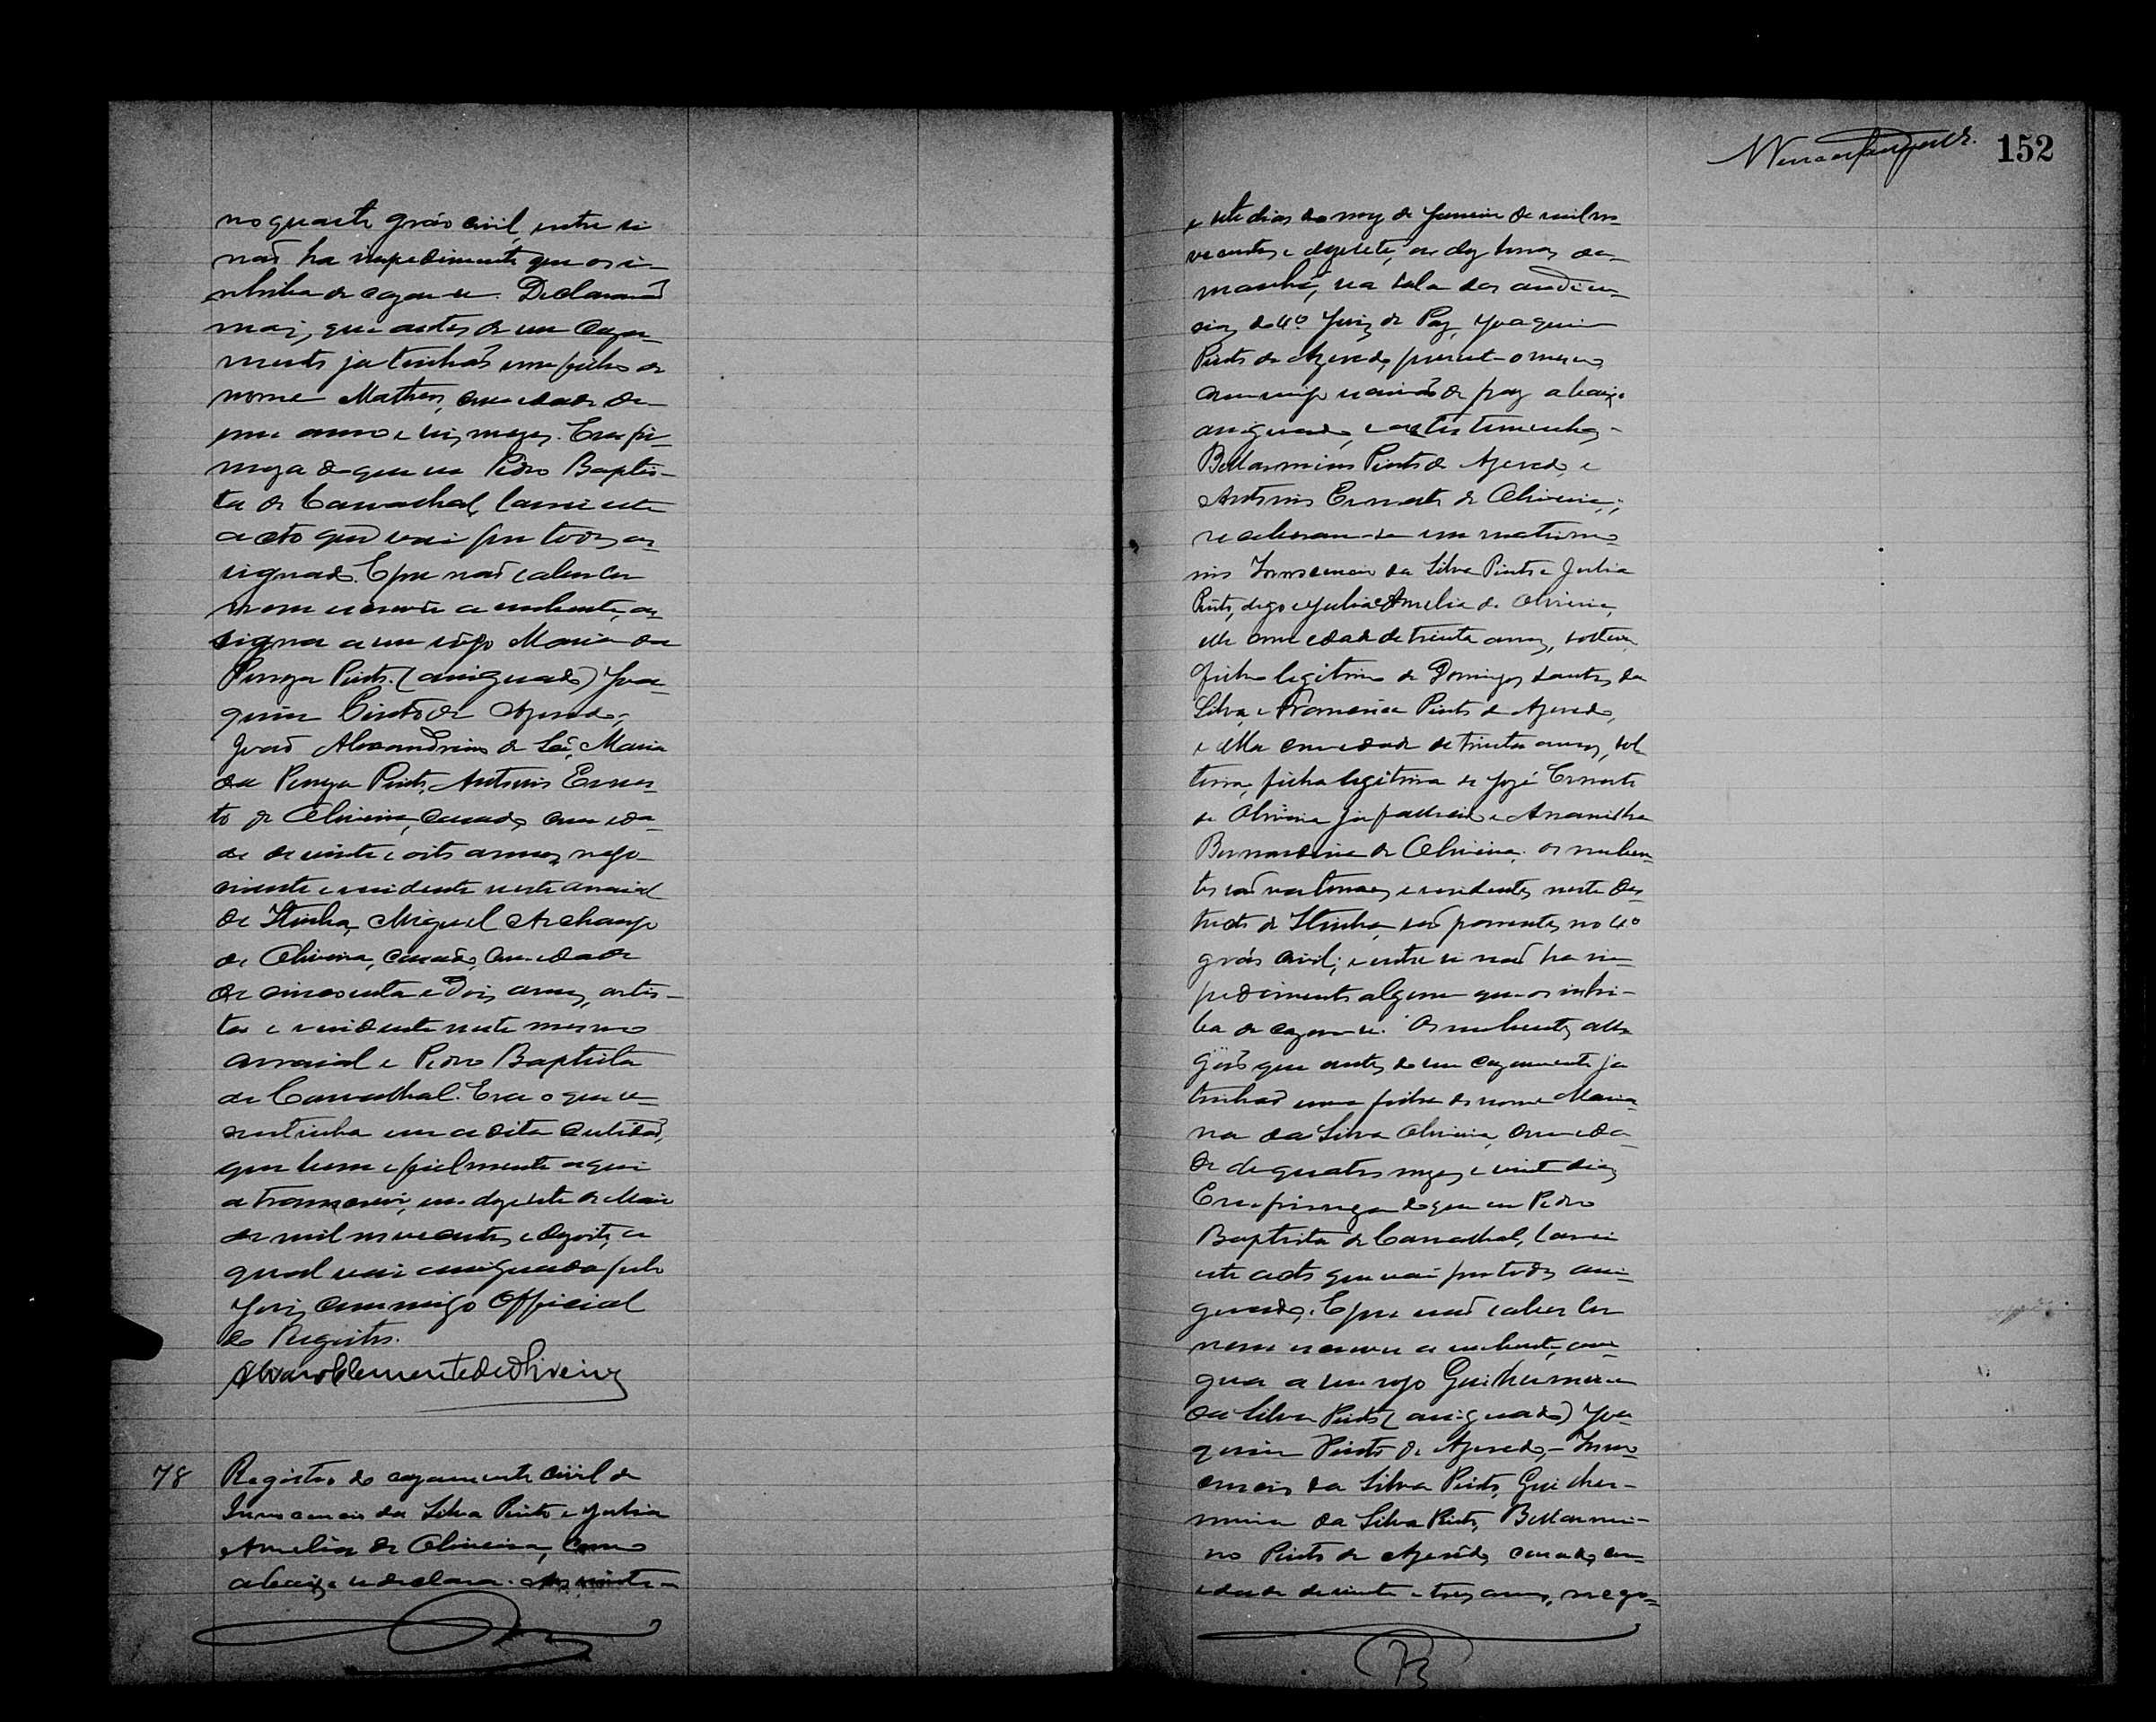 no quarto gráo civil, entre si
não ha impedimento que os i-
nhiba de cazar-se. Declararaõ
mais, que antes de seu caza-
mento ja tinhaõ um filho de
nome Matheus, com edade de
um anno e seis mezes. E em fir-
meza do que eu Pedro Baptis-
ta de Carvalhal, lavrei este
acto que vai por todos as-
signado. E por naõ saber ler
nem escrever a nubente, as-
signa a seu rôgo Maria da
Pureza Pinto. (assignado) Joa-
quim Pinto de Azevedo,
Joaõ Alexandrino de Sá, Maria
da Pureza Pinto, Antonio Ernes-
to de Oliveira, casado, com eda-
de de vinte e oito annos, nego-
ciante e residente neste arraial
de Itinha, Miguel Archanjo
de Oliveira, casado, com edade
de cincoenta e dois annos, artis-
ta e residente neste mesmo
arraial e Pedro Baptista
de Carvalhal. Era o que se
continha em a dita certidaõ,
que bem e fielmente aqui
a transcrevi, em dezesete de Maio
de mil novecentos e dezoito, a
qual vai assignada pelo
Juiz commigo Official
do Registro.
Alvaro Clemente de Oliveira
78 Registro do cazamento civil de
Innocencio da Silva Pinto e Julia
Amelia de Oliveira, como
abaixo se declara. Aos vinte
152
e sete dias do mez de Janeiro de mil no-
vecentos e dezesete, as dez horas da
manhã, na sala das audien-
cias do 4º Juiz de Paz, Joaquim
Pinto de Azevedo, presente o mesmo
commigo escrivaõ de paz abaixo
assignado, e as testemunhas
Bellarmino Pinto de Azevedo e
Antonio Ernesto de Oliveira;
receberam-se em matrimo-
nio Innocencio da Silva Pinto e Julia
Pinto, digo e Julia Amelia de Oliveira,
elle com edade de trinta annos, solteiro,
filho legitimo de Domingos Santos da
Silva, e Francisca Pinto de Azevedo,
e ella com edade de trinta annos, sol-
teira, filha legitima de José Ernesto
de Oliveira já fallecido e
Bernardina de Oliveira. os nuben-
tes saõ naturaes e residentes neste des-
tricto de Itinha, saõ parentes no 4º
gráo civil; e entre si naõ ha im-
pedimento algum que os inhi-
ba de cazar-se. Os nubentes alle-
gaõ que antes de seu cazamento ja
tinhaõ uma filha de nome Maria-
na da Silva Oliveira, com eda-
de de quatro mezes e vinte dias
E em firmeza do que eu Pedro
Baptista de Carvalhal, lavrei
este acto que vai por todos assi-
gnado. E por naõ saber ler
nem escrever a nubente, assi-
gna a seu rogo Guilhermina
da Silva Pinto (assignado) Joa-
quim Pinto de Azevedo, - Inno-
cencio da Silva Pinto, Guilher-
mina da Silva Pinto, Bellarmi-
no Pinto de Azevêdo, casado, com
edade de vinte e tres annos, nego-